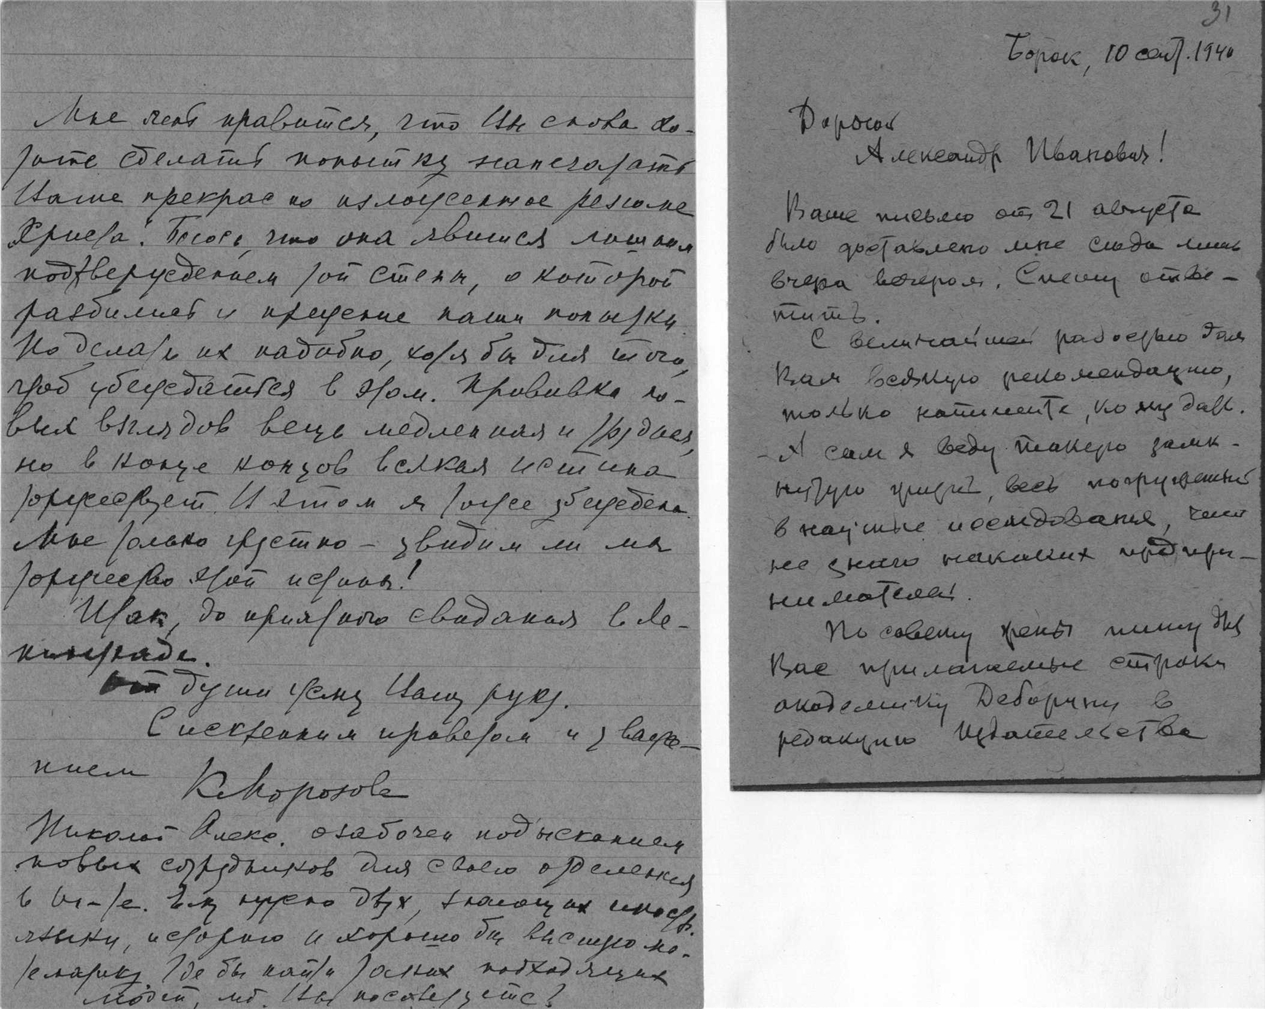 Мне очень нравится, что Вы снова хо-
тите сделать попытку напечатать
Ваше прекрасно изложенное резюме
Христа! Боюсь, что она явится лишним
подтверждением той стены, о которой
разбились и прежние наши попытки.
Но делать их надобно, хотя бы для того,
чтоб убедиться в этом. Прививка но-
вых взглядов вещь медленная и трудная,
но в конце концов всякая истина
торжествует. И в этом я тоже убеждена.
Мне только грустно – увидим ли мы
торжество этой истины!
Итак, до приятного свидания в Ле-
нинграде.
От души жму Вашу руку.
С искренним приветом и уваже-
нием
К Морозова
Николай Алекс. озабочен подысканием
новых сотрудников для своего отделения
в ин-те. Ему нужно двух, знающих иностр.
языки, историю и хорошо бы высшую ма-
тематику. Где бы найти таких подходящих
людей, мб. Вы посоветуете?
31
Борок, 10 сент. 1940
Дорогой
Александр Иванович!
Ваше письмо от 21 августа
было доставлено мне сюда лишь
вчера вечером. Спешу отве-
тить.
С величайшей радостью дам
Вам всякую рекомендацию,
только напишите, кому дать.
А сам я веду такую замк-
нутую жизнь, весь погруженный
в научные исследования, что
не знаю никаких предпри-
нимателей.
По совету жены пишу для
Вас прилагаемые строки
академику Деборину в
редакцию Издательства